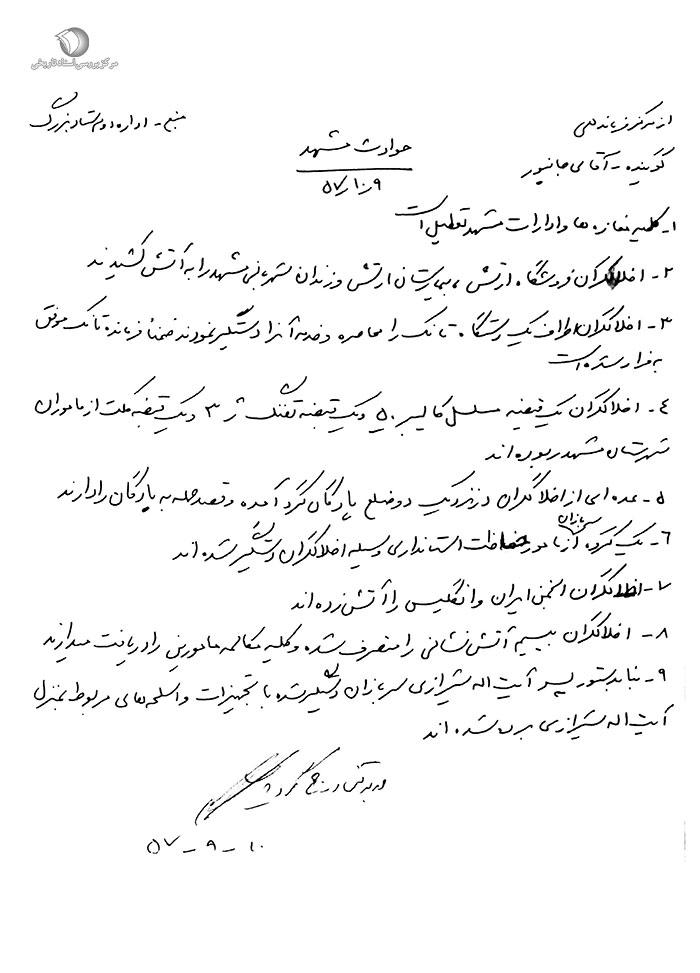 مرکز بررسی اسناد تاریخی
از مرکز فرماندهی
منبع - اداره دوم ستاد بزرگ
گوینده - آقای جانپور
حوادث مشهد
۵۷/۱۰/۹
۱- کلیه مغازه ها و ادارات مشهد تعطیل است
۲- اخلالگران فروشگاه ارتش، بیمارستان ارتش و زندان شهربانی مشهد را به آتش کشیدند
۳- اخلالگران اطراف یک دستگاه تانک را محاصره و خدمه آنرا دستگیر نمودند ضمناً فرمانده تانک موفق
بفرار شده است
۴- اخلالگران یک قبضه مسلسل کالیبر ۵۰ و یک قبضه تفنگ ژ ۳ و یک قبضه کلت از ماموران
شهرستان مشهد ربوده اند
۵- عده ای از اخلالگران در نزدیک دو ضلع پادگان گرد آمده و قصد حمله به پادگان را دارند
۶- یک گروه از سربازان مامور حفاظت استانداری وسیله اخلالگران دستگیر شده اند
۷- اخلالگران انجمن ایران و انگلیس را آتش زده اند
۸- اخلالگران بیسیم آتش نشانی را متصرف شده و کلیه مکالمه مامورین را دریافت میدارند
۹- بنا بدستور پسر آیت اله شیرازی سربازان دستگیر شده با تجهیزات و اسلحه های مربوط بمنزل
آیت اله شیرازی برده شده اند
۵۷-۹-۱۰